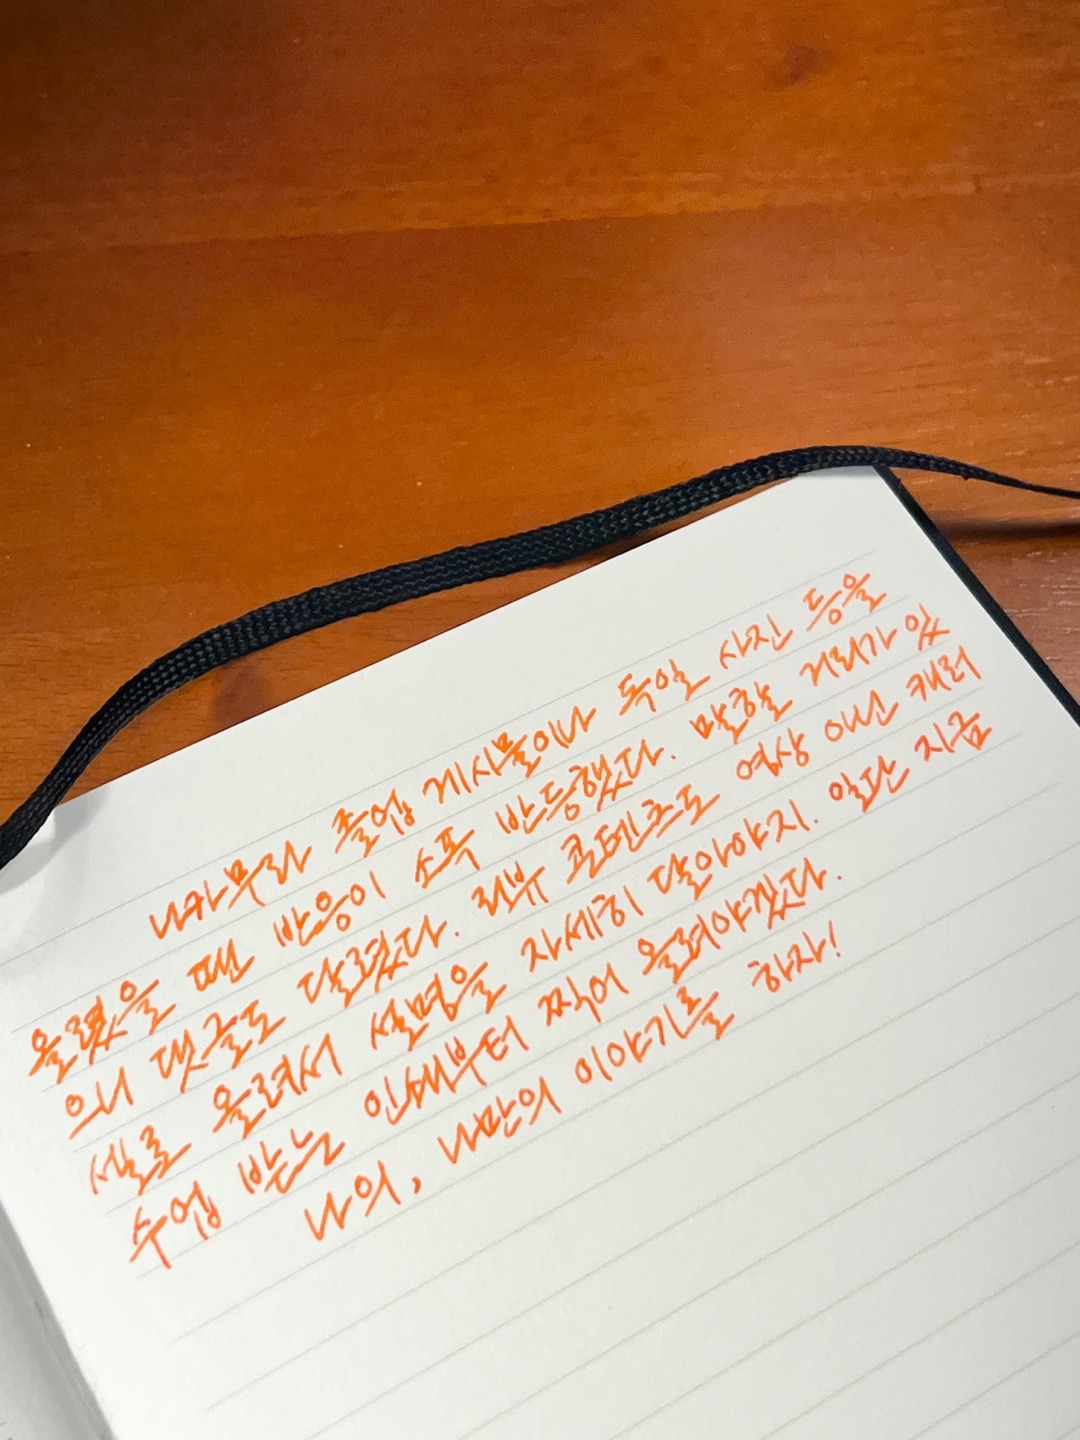 나카무라 졸업 게시물이나 독일 사진 등을
올렸을 때 반응이 소폭 반등했다. 말할 거리가 있
으니 댓글도 달렸다. 리뷰 콘텐츠도 영상 아닌 캐러
셀로 올려서 설명을 자세히 달아야지. 일단 지금
수업 받는 인쇄부터 찍어 올려야겠다.
나의, 나만의 이야기를 하자!